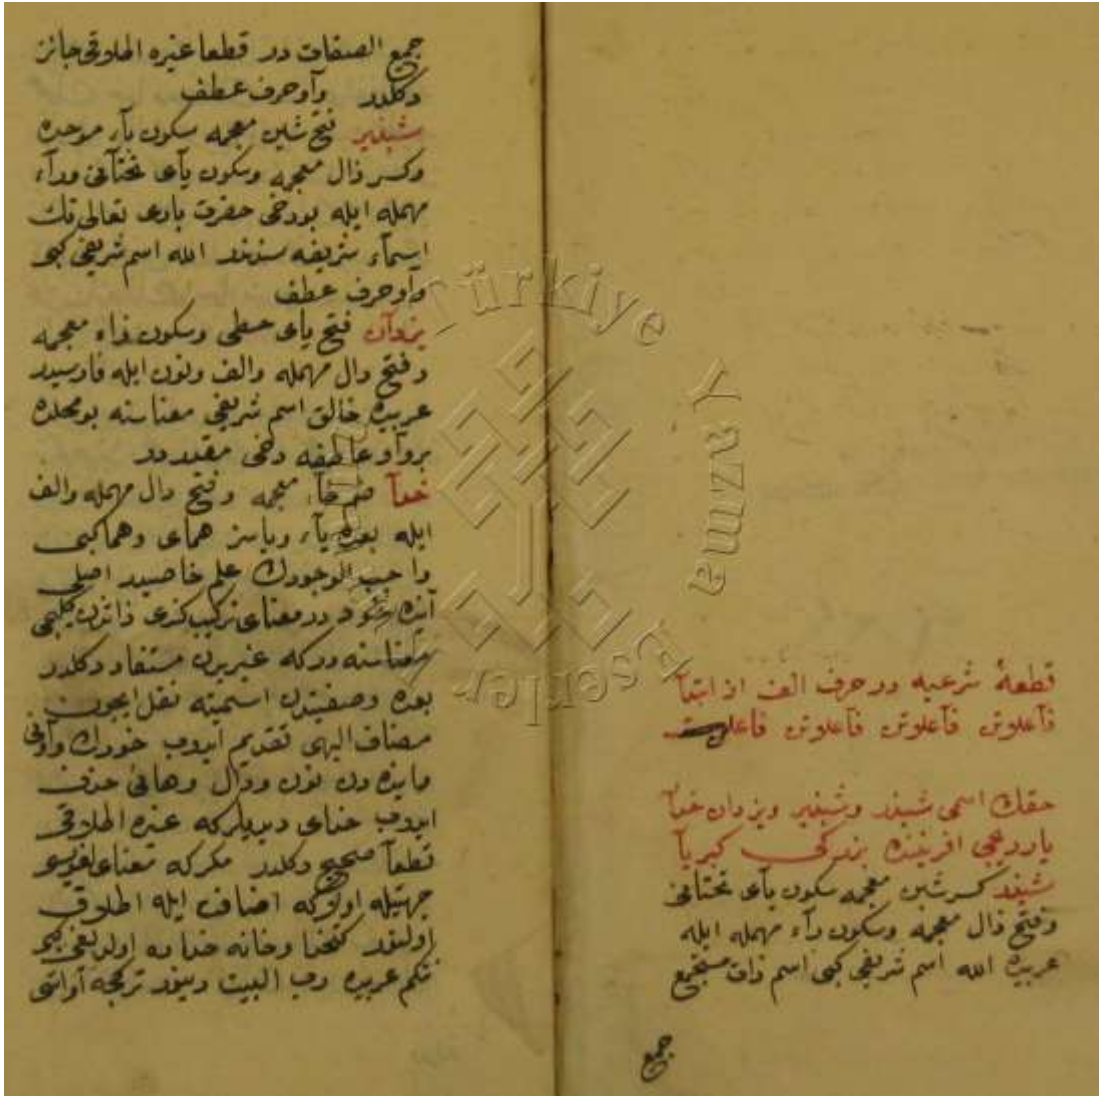 قطعهٔ شرعیه در حرف الف از ابتدآ
فآعلوتن فآعلوتن فآعلوتن فاعلن
حقك اسمی شیذر وشبذیر ویزدان خدآ
یاردمجی افریننده بزرکی کبریآ
شیذر کسر شین معجمه سکون یآی تحتانی
وفتح ذال معجمه وسکون رآء مهمله ایله
عربیده الله اسم شریفی کبی اسم ذات مستجمع
جمع
جمع الصفات در قطعا غیره اطلاقی جائز
دکلدر وآو حرف عطف
شبذیر فتح شین معجمه سکون بآء موحده
وکسر ذال معجمه وسکون یآی تحتآنی ورآء
مهمله ایله بودخی حضرت باری تعالی نك
اسمآء شریفه سندندر الله اسم شریفی کبی
وآو حرف عطف
یزدآن فتح یآی حطی وسکون زاء معجمه
وفتح دال مهمله والف ونون ایله فارسیدر
عربیده خالق اسم شریفی معناسنه بومحلده
بروآو عاطفه دخی مقدردر
خدآ ضم خآء معجمه وفتح دال مهمله والف
ایله بعده یآء ویاسز همای وهما کبی
واجب الوجودك علم خاصیدر اصلی
آینده در معنای ترکیب کندی ذاتندن کلیجی
معناسنه در که غیریدن مستفاد دکلدر
بعده وصفیتدن اسمیته نقل ایچون
مضاف الیهی تقدیم ایدوب خودك وآونی
وآینده دن نون ودال وهائی حذف
ایدوب خدای دیدیلر که غیره اطلاقی
قطعآ صحیح دکلدر مکر که معنای لغویسی
جهتیله اوله که اضافت ایله اطلاق
اولنور کتخدا وخانه خدا ده اولدیغی کبی
نتکم عربیده رب البیت دینور ترکجه